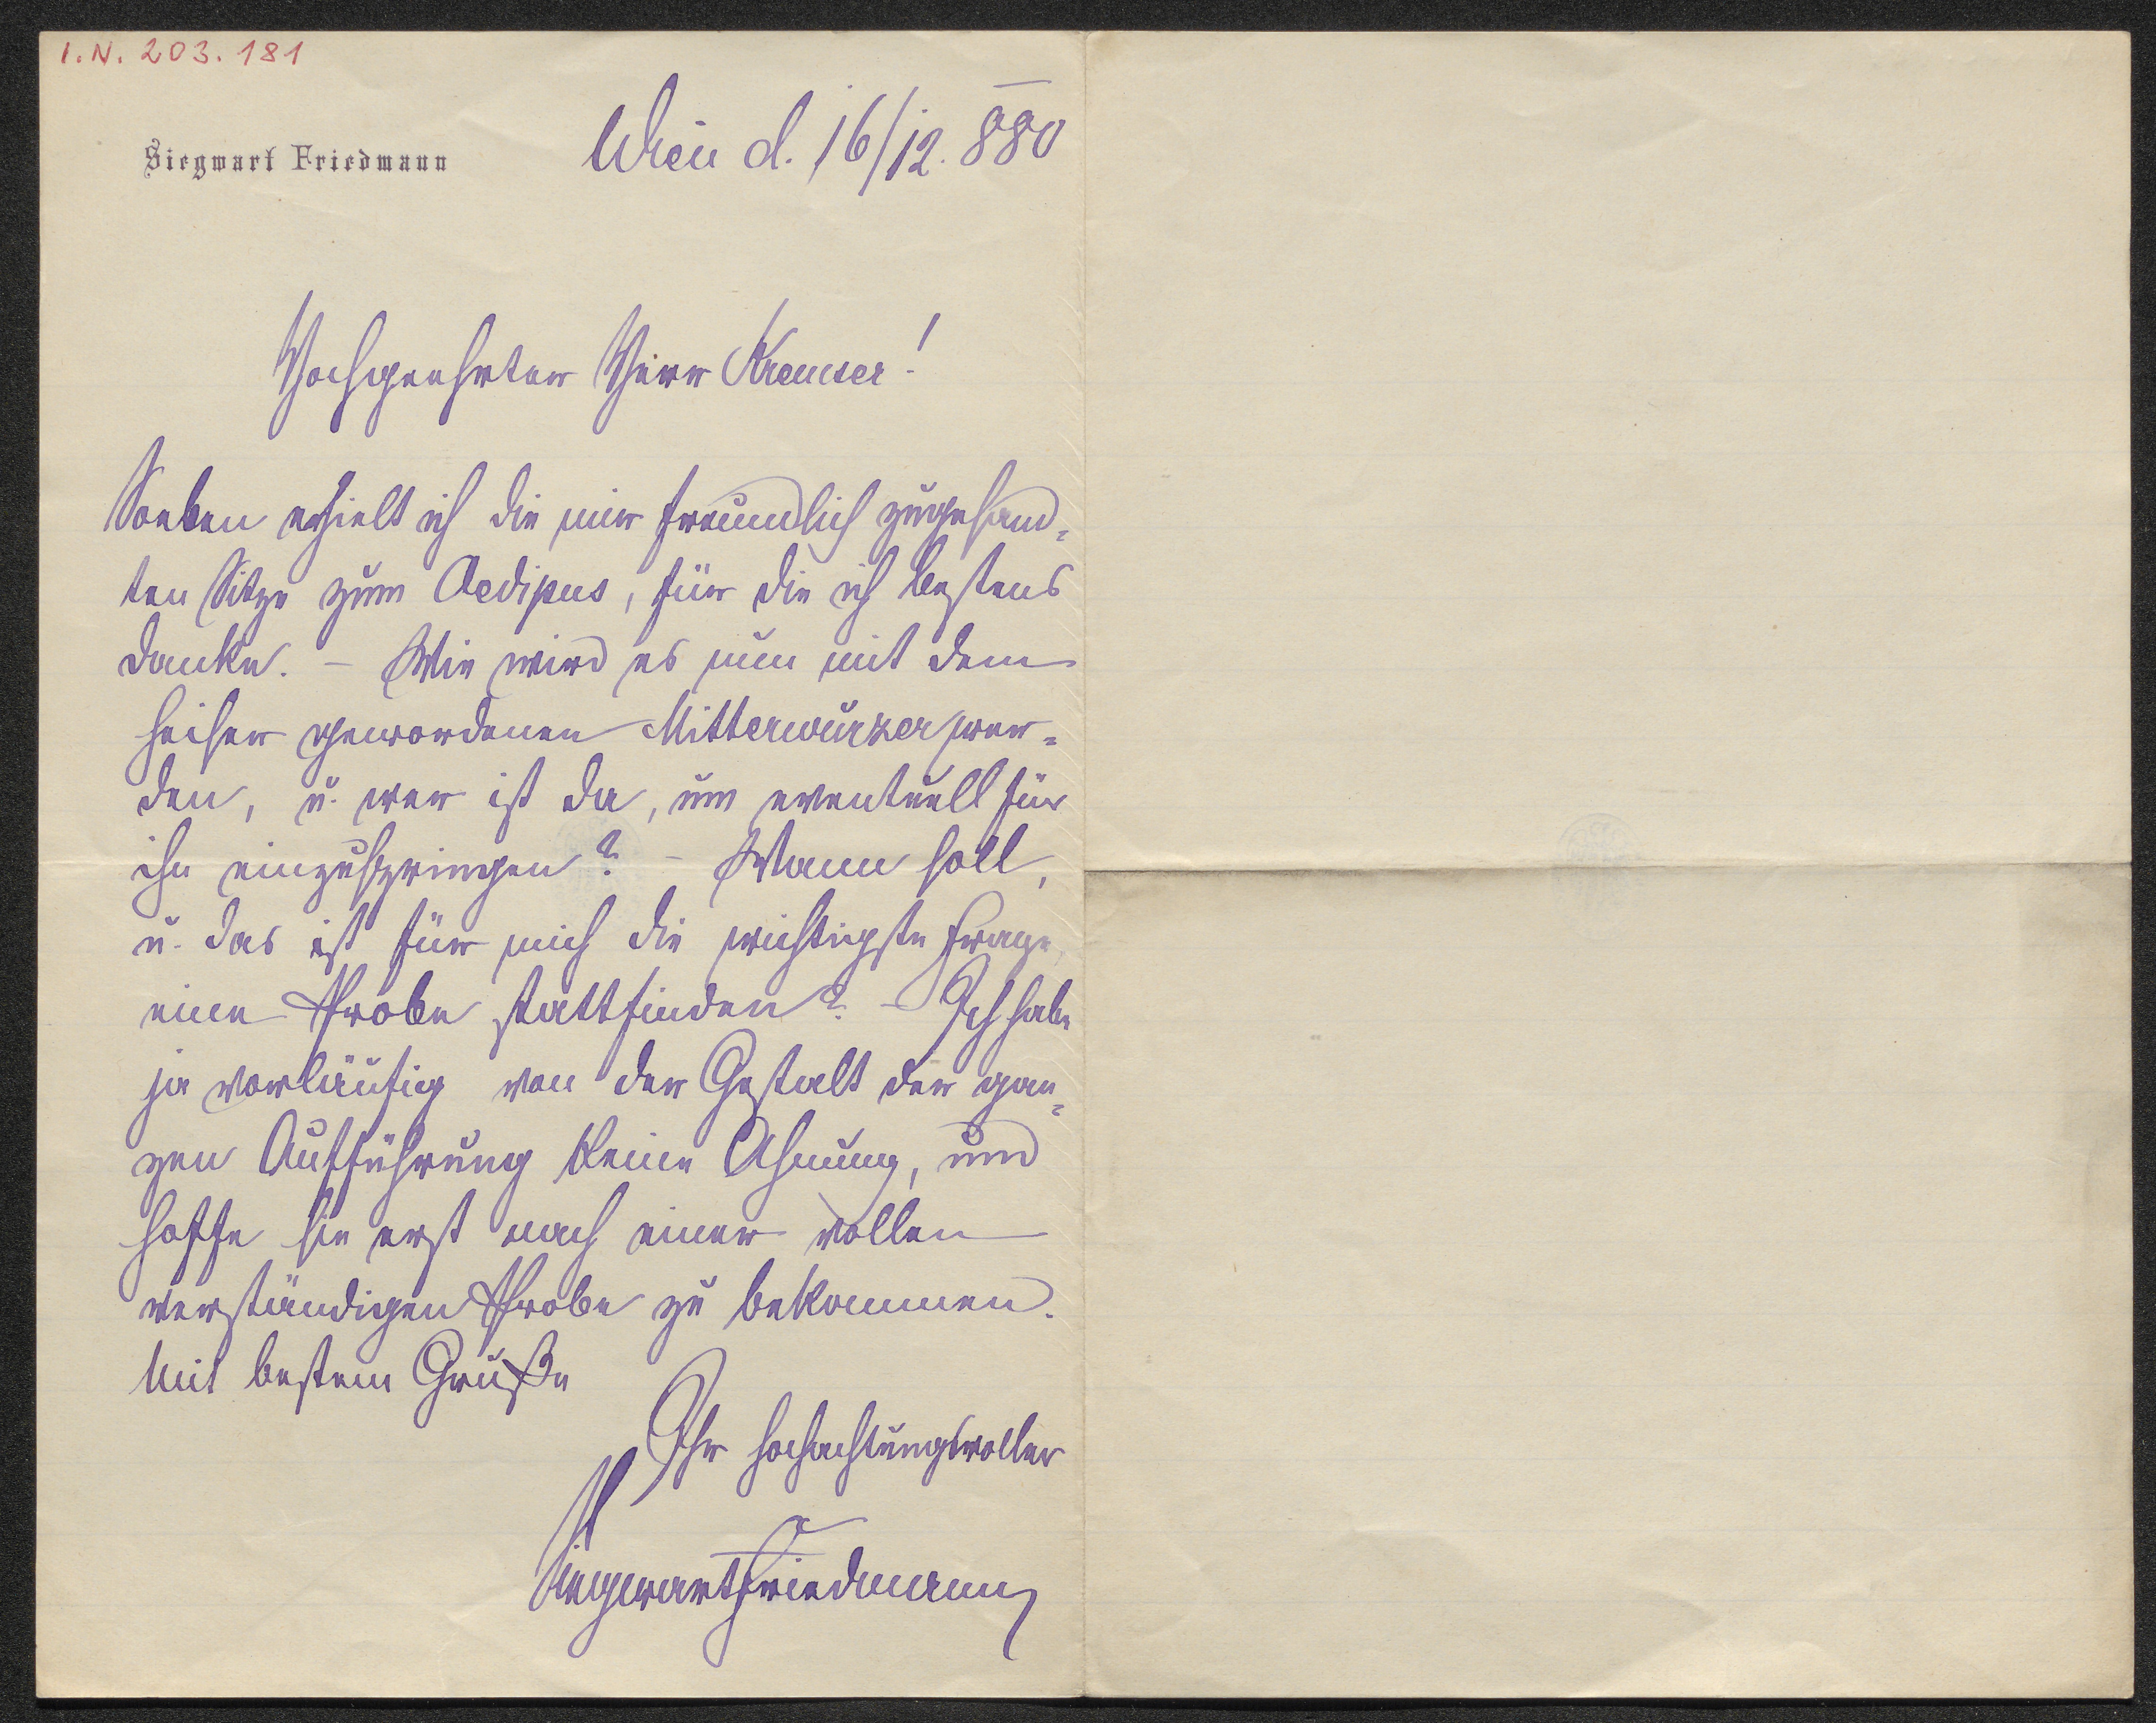 I.N. 203.181
Siegwart Friedmann
Wien d. 16/12. 880
Hochgeehrter Herr Kremser!
Soeben erhielt ich die mir freundlich zugesand=
ten Sitze zum Oedipus, für die ich bestens
danke. – Wie wird es nun mit dem
heiser gewordenen Mitterwurzer wer=
den, u. wer ist da, um eventuell für
ihn einzuspringen? – Wann soll,
u. das ist für mich die wichtigste Frage,
eine Probe stattfinden? – Ich habe
ja vorläufig von der Gestalt der gan=
zen Aufführung keine Ahnung, und
hoffe sie erst nach einer vollen
verständigen Probe zu bekommen.
Mit bestem Gruße
Ihr hochachtungsvoller
Siegwart Friedmann